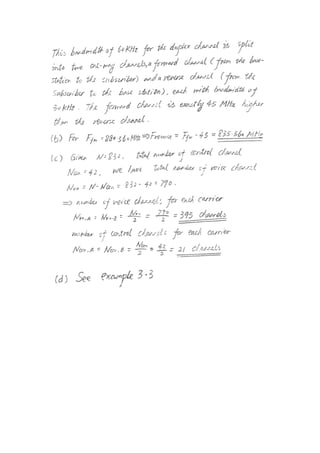 This bandwidth of 60 KHz for the duplex channel is split
into two one-way channels, a forward channel (from the base-
station to the subscriber) and a reverse channel (from the
subscriber to the base station), each with bandwidth of
30 KHz. The forward channel is exactly 45 MHz higher
than the reverse channel.
(b) For Ffw = 880.560 MHz ⇒ Freverse = Ffw - 45 = 835.560 MHz
(c) Given N = 832, total number of control channel
Ncon = 42, we have total number of voice channel
Nvo = N - Ncon = 832 - 42 = 790.
⇒ number of voice channels for each carrier
Nvo.A = Nvo.B = Nvo/2 = 790/2 = 395 channels
number of control channels for each carrier
Ncon.A = Ncon.B = Ncon/2 = 42/2 = 21 channels
(d) See example 3.3